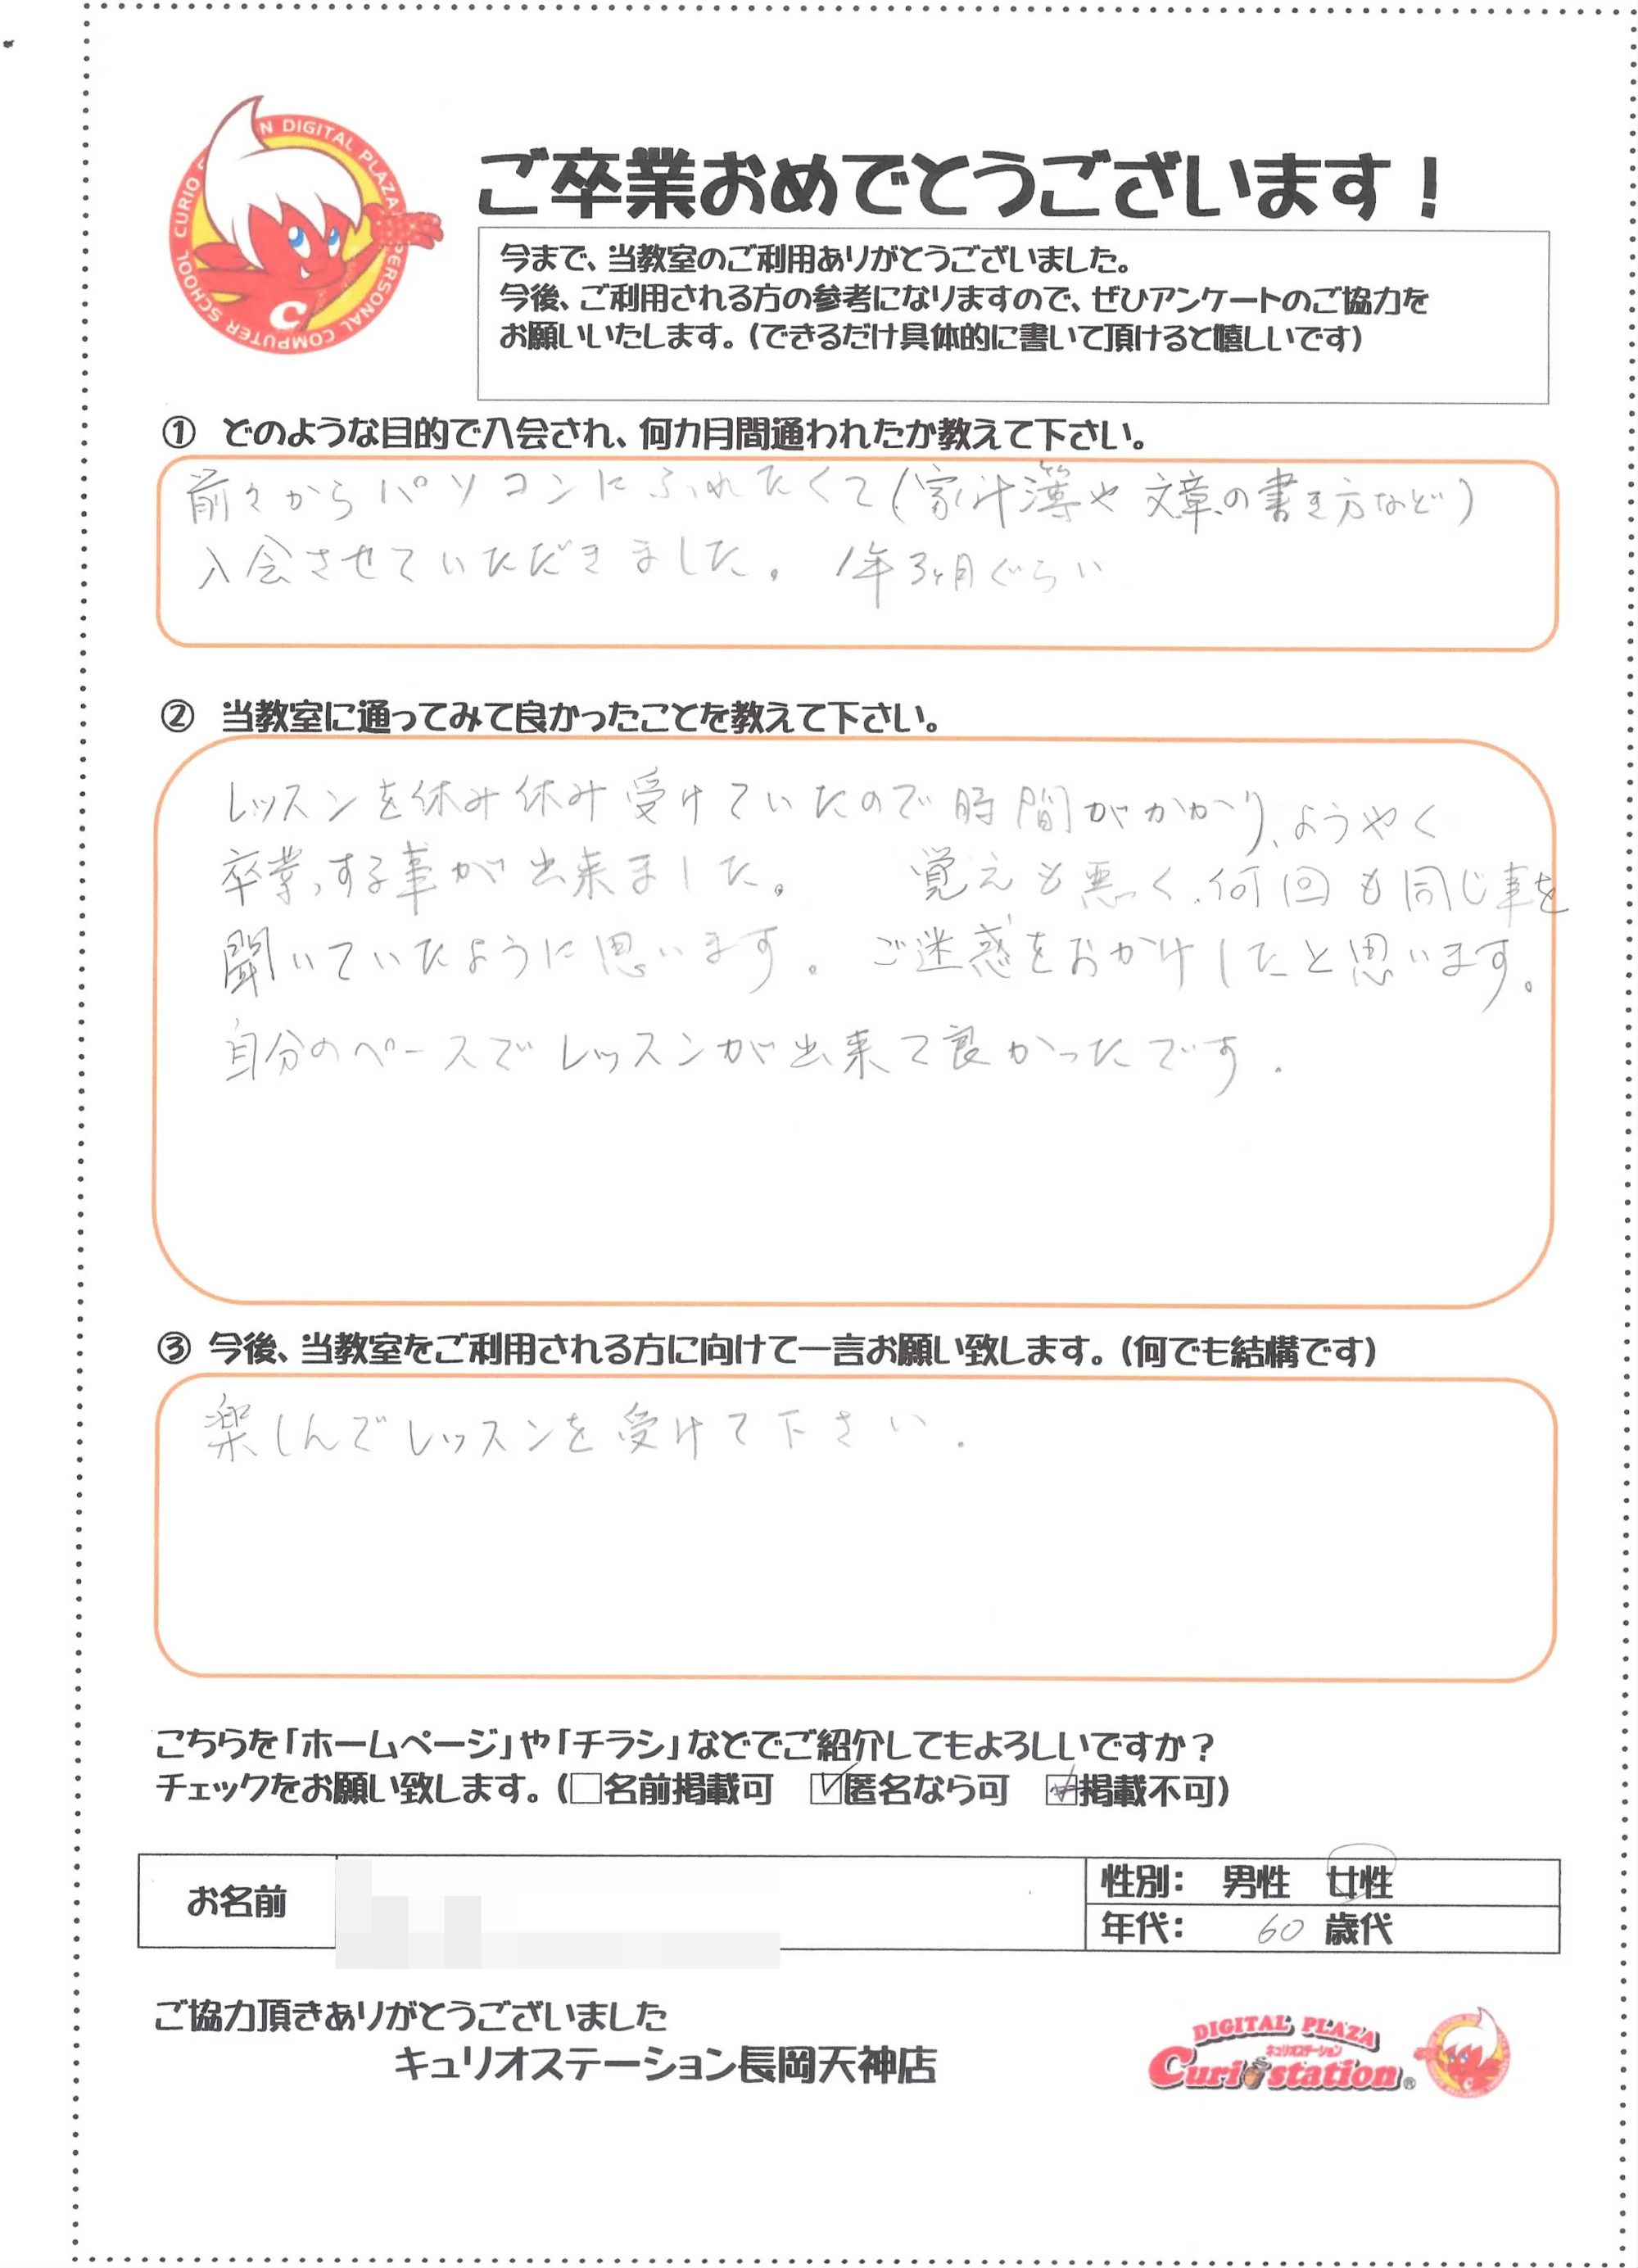 N DIGITAL PLAZA
PERSONAL COMPUTER SCHOOL CURIO
C
ご卒業おめでとうございます！
今まで、当教室のご利用ありがとうございました。
今後、ご利用される方の参考になりますので、ぜひアンケートのご協力を
お願いいたします。（できるだけ具体的に書いて頂けると嬉しいです）
① どのような目的で入会され、何カ月間通われたか教えて下さい。
前々からパソコンにふれたくて（家計簿や文章の書き方など）
入会させていただきました。 1年3ヶ月ぐらい
② 当教室に通ってみて良かったことを教えて下さい。
レッスンを休み休み受けていたので時間がかかり、ようやく
卒業する事が出来ました。 覚えも悪く、何回も同じ事を
聞いていたように思います。ご迷惑をおかけしたと思います。
自分のペースでレッスンが出来て良かったです。
③ 今後、当教室をご利用される方に向けて一言お願い致します。（何でも結構です）
楽しんでレッスンを受けて下さい。
こちらを「ホームページ」や「チラシ」などでご紹介してもよろしいですか？
チェックをお願い致します。（□名前掲載可 ☑匿名なら可 ☑掲載不可）
お名前
性別： 男性 女性
年代： 60 歳代
ご協力頂きありがとうございました
キュリオステーション長岡天神店
DIGITAL PLAZA
キュリオステーション
Curio station®